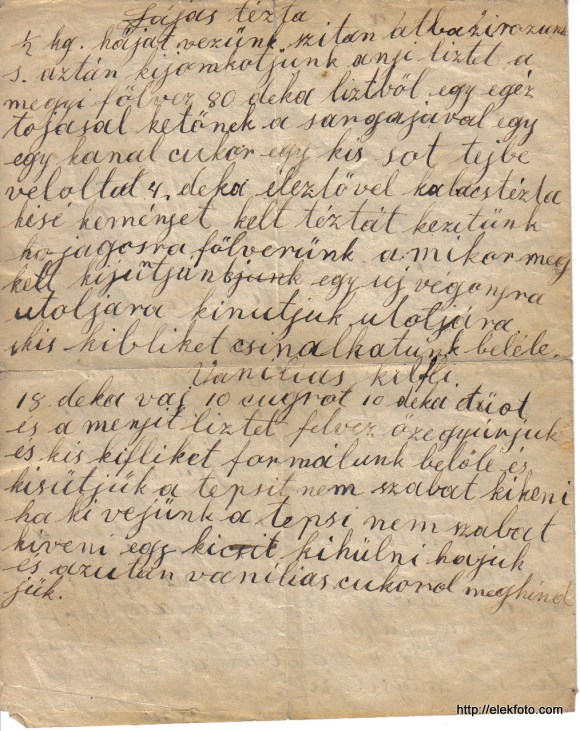 Hájas tézta
½ kg. hájat vezünk szitan átbaźirozunk
s. aztán kijamkotjunk anji liztet a
megyi fölvez 80 deka liztből egy egéz
tojásal ketőnek a sargajával egy
egy kanal cukor egy kis sot tejbe
veloltut 4. deka éleztővel kalacstézta
kisé keménjet kelt téztát kezitünk
hojagosra fölverünk amikor meg
kelt kijutjuk egy uj végonjra
utoljara kinutjuk utoljára
kis kibliket csinalhatunk beléle.
Vanilias kifli.
18 deka vaj 10 cugrot 10 deka diot
és a menjit liztet felvez özegyúrjuk
és kis kifliket formálunk belőle és
kisütjük a tepsit nem szabat kikeni
ha ki vejünk a tepsi nem szabat
kiveni egy kicsit kihülni hajuk
és azután vanilias cukorol meghind
jük.
http://elekfoto.com